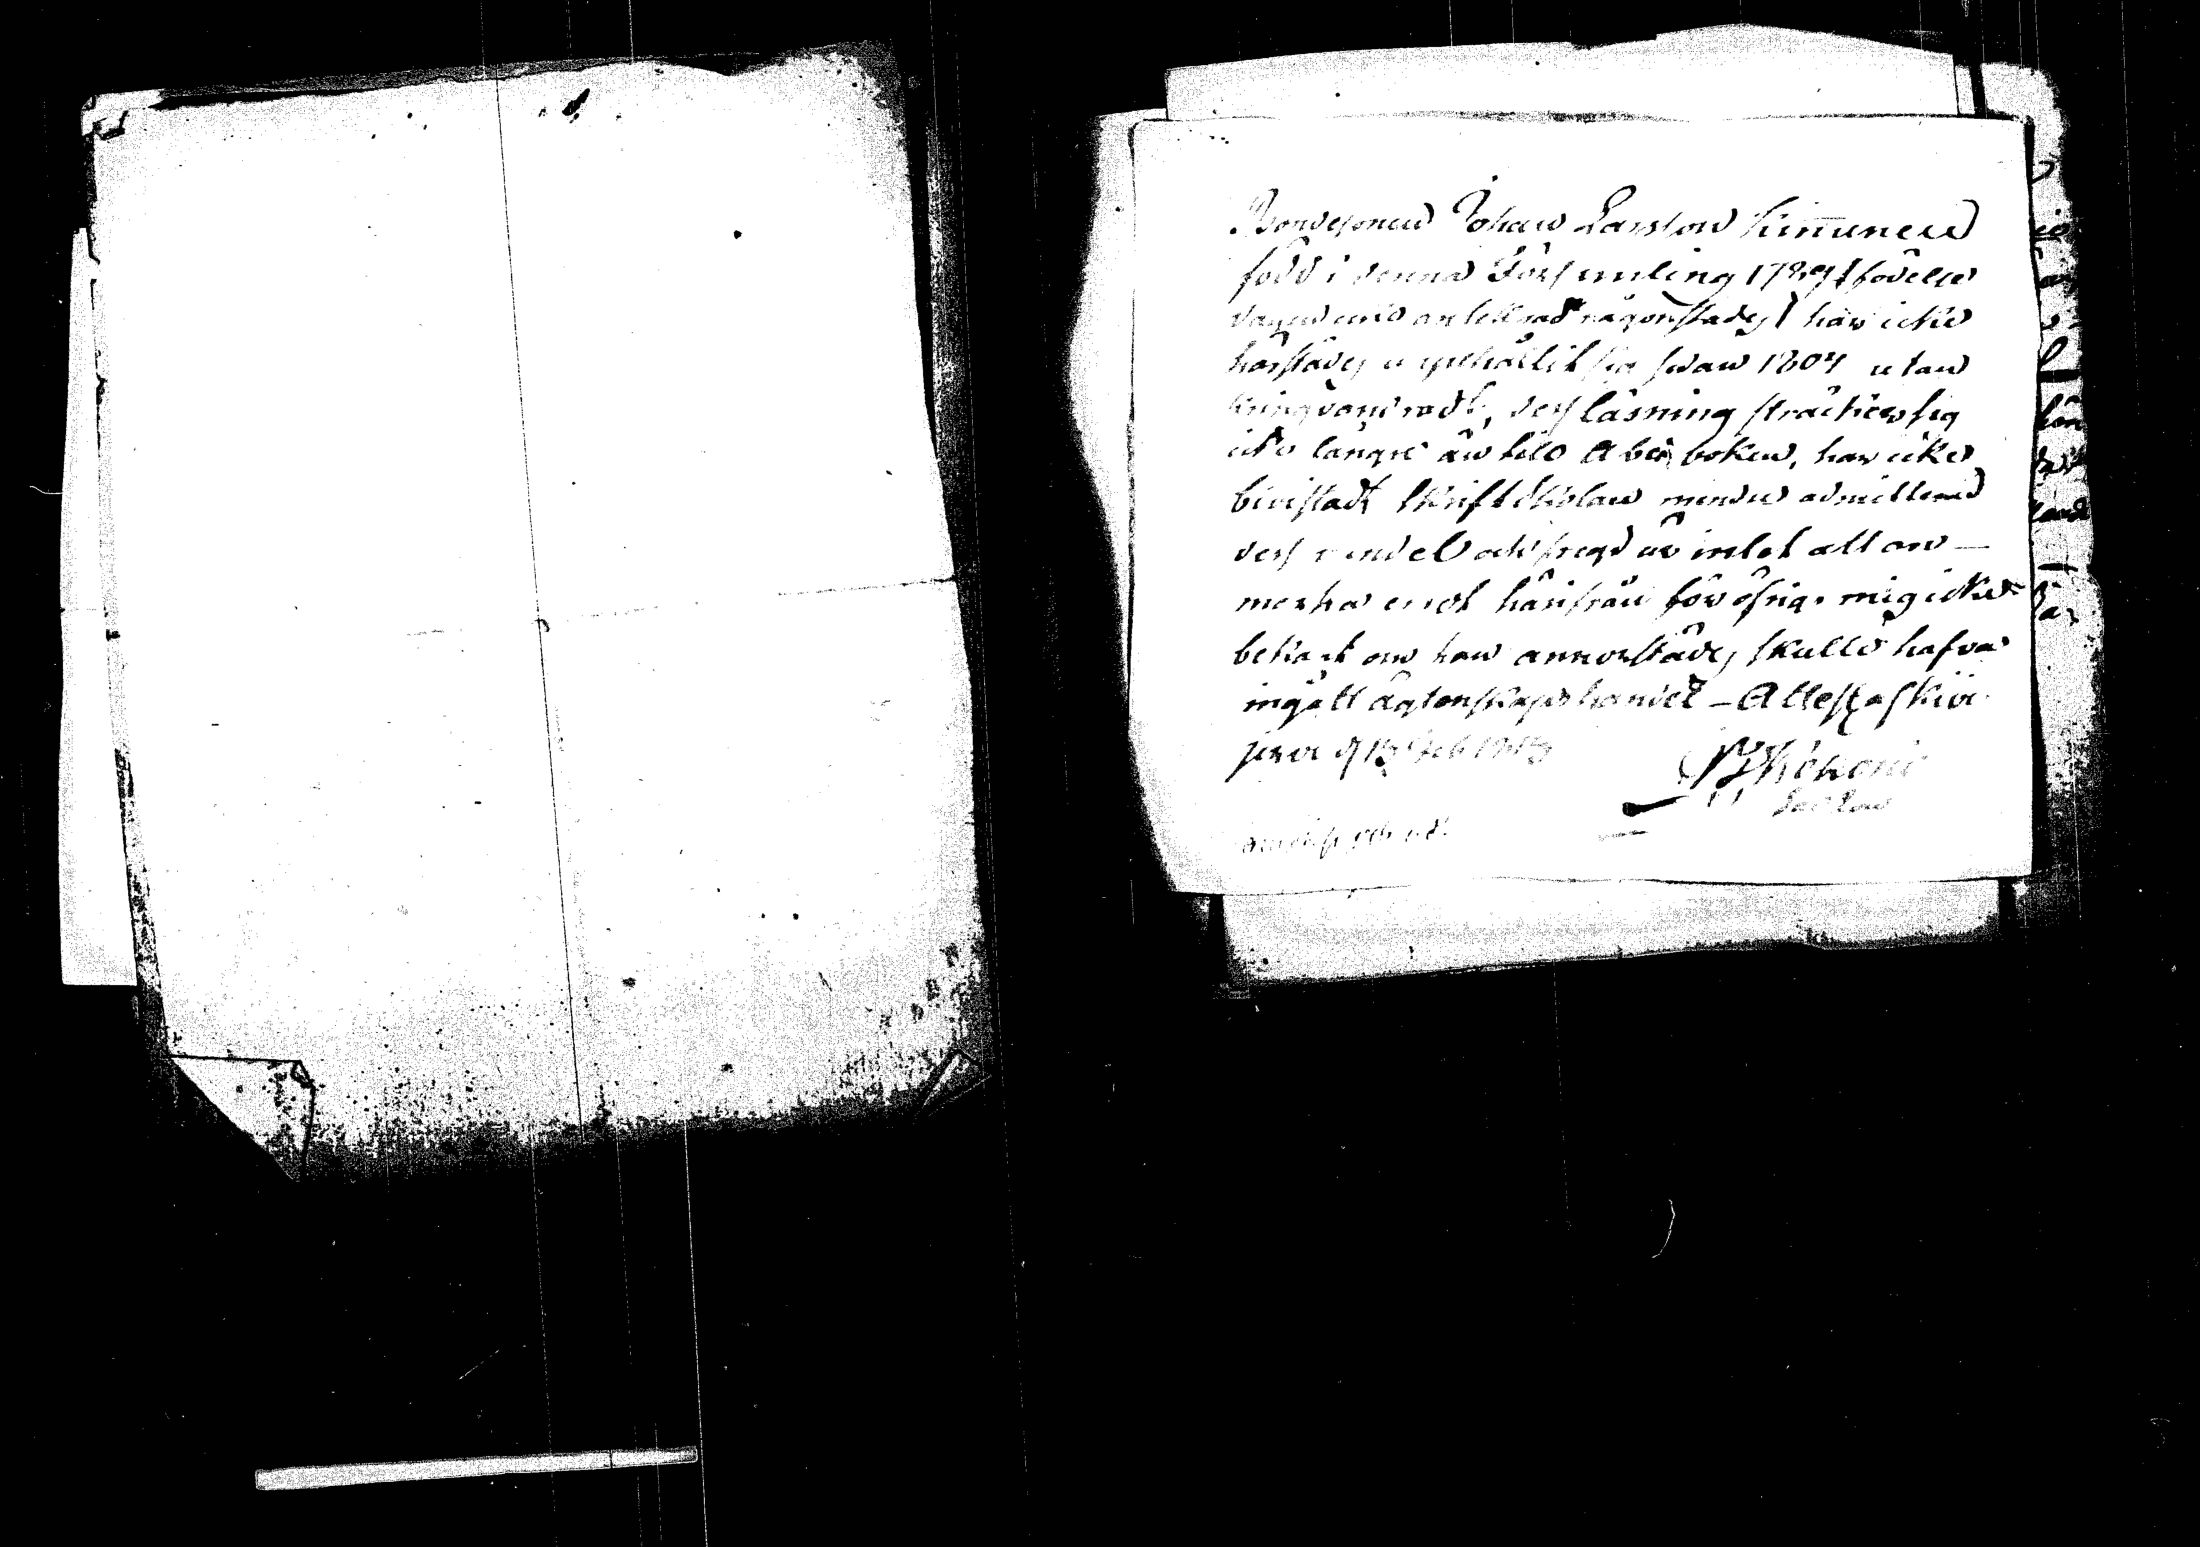 Bondesonen Johan Larsson Kinnunen
född i denna Församling 1789 (födelse
dagen ens antecknad någorstädes) har icke
härstädes uppehållit sig sedan 1804 utan
kringvandradt, dess läsning sträcker sig
icke längre än till Abc boken, har icke
bevistadt Skriftskolan mindre admitterad
dess vandel och fregd är intet att an-
merka emot härifrån för öfrigt mig icke
bekant om han annorstädes skulle hafva
ingått ägtenskaps handel - Attesteras Kivi
jervi d 13 Feb